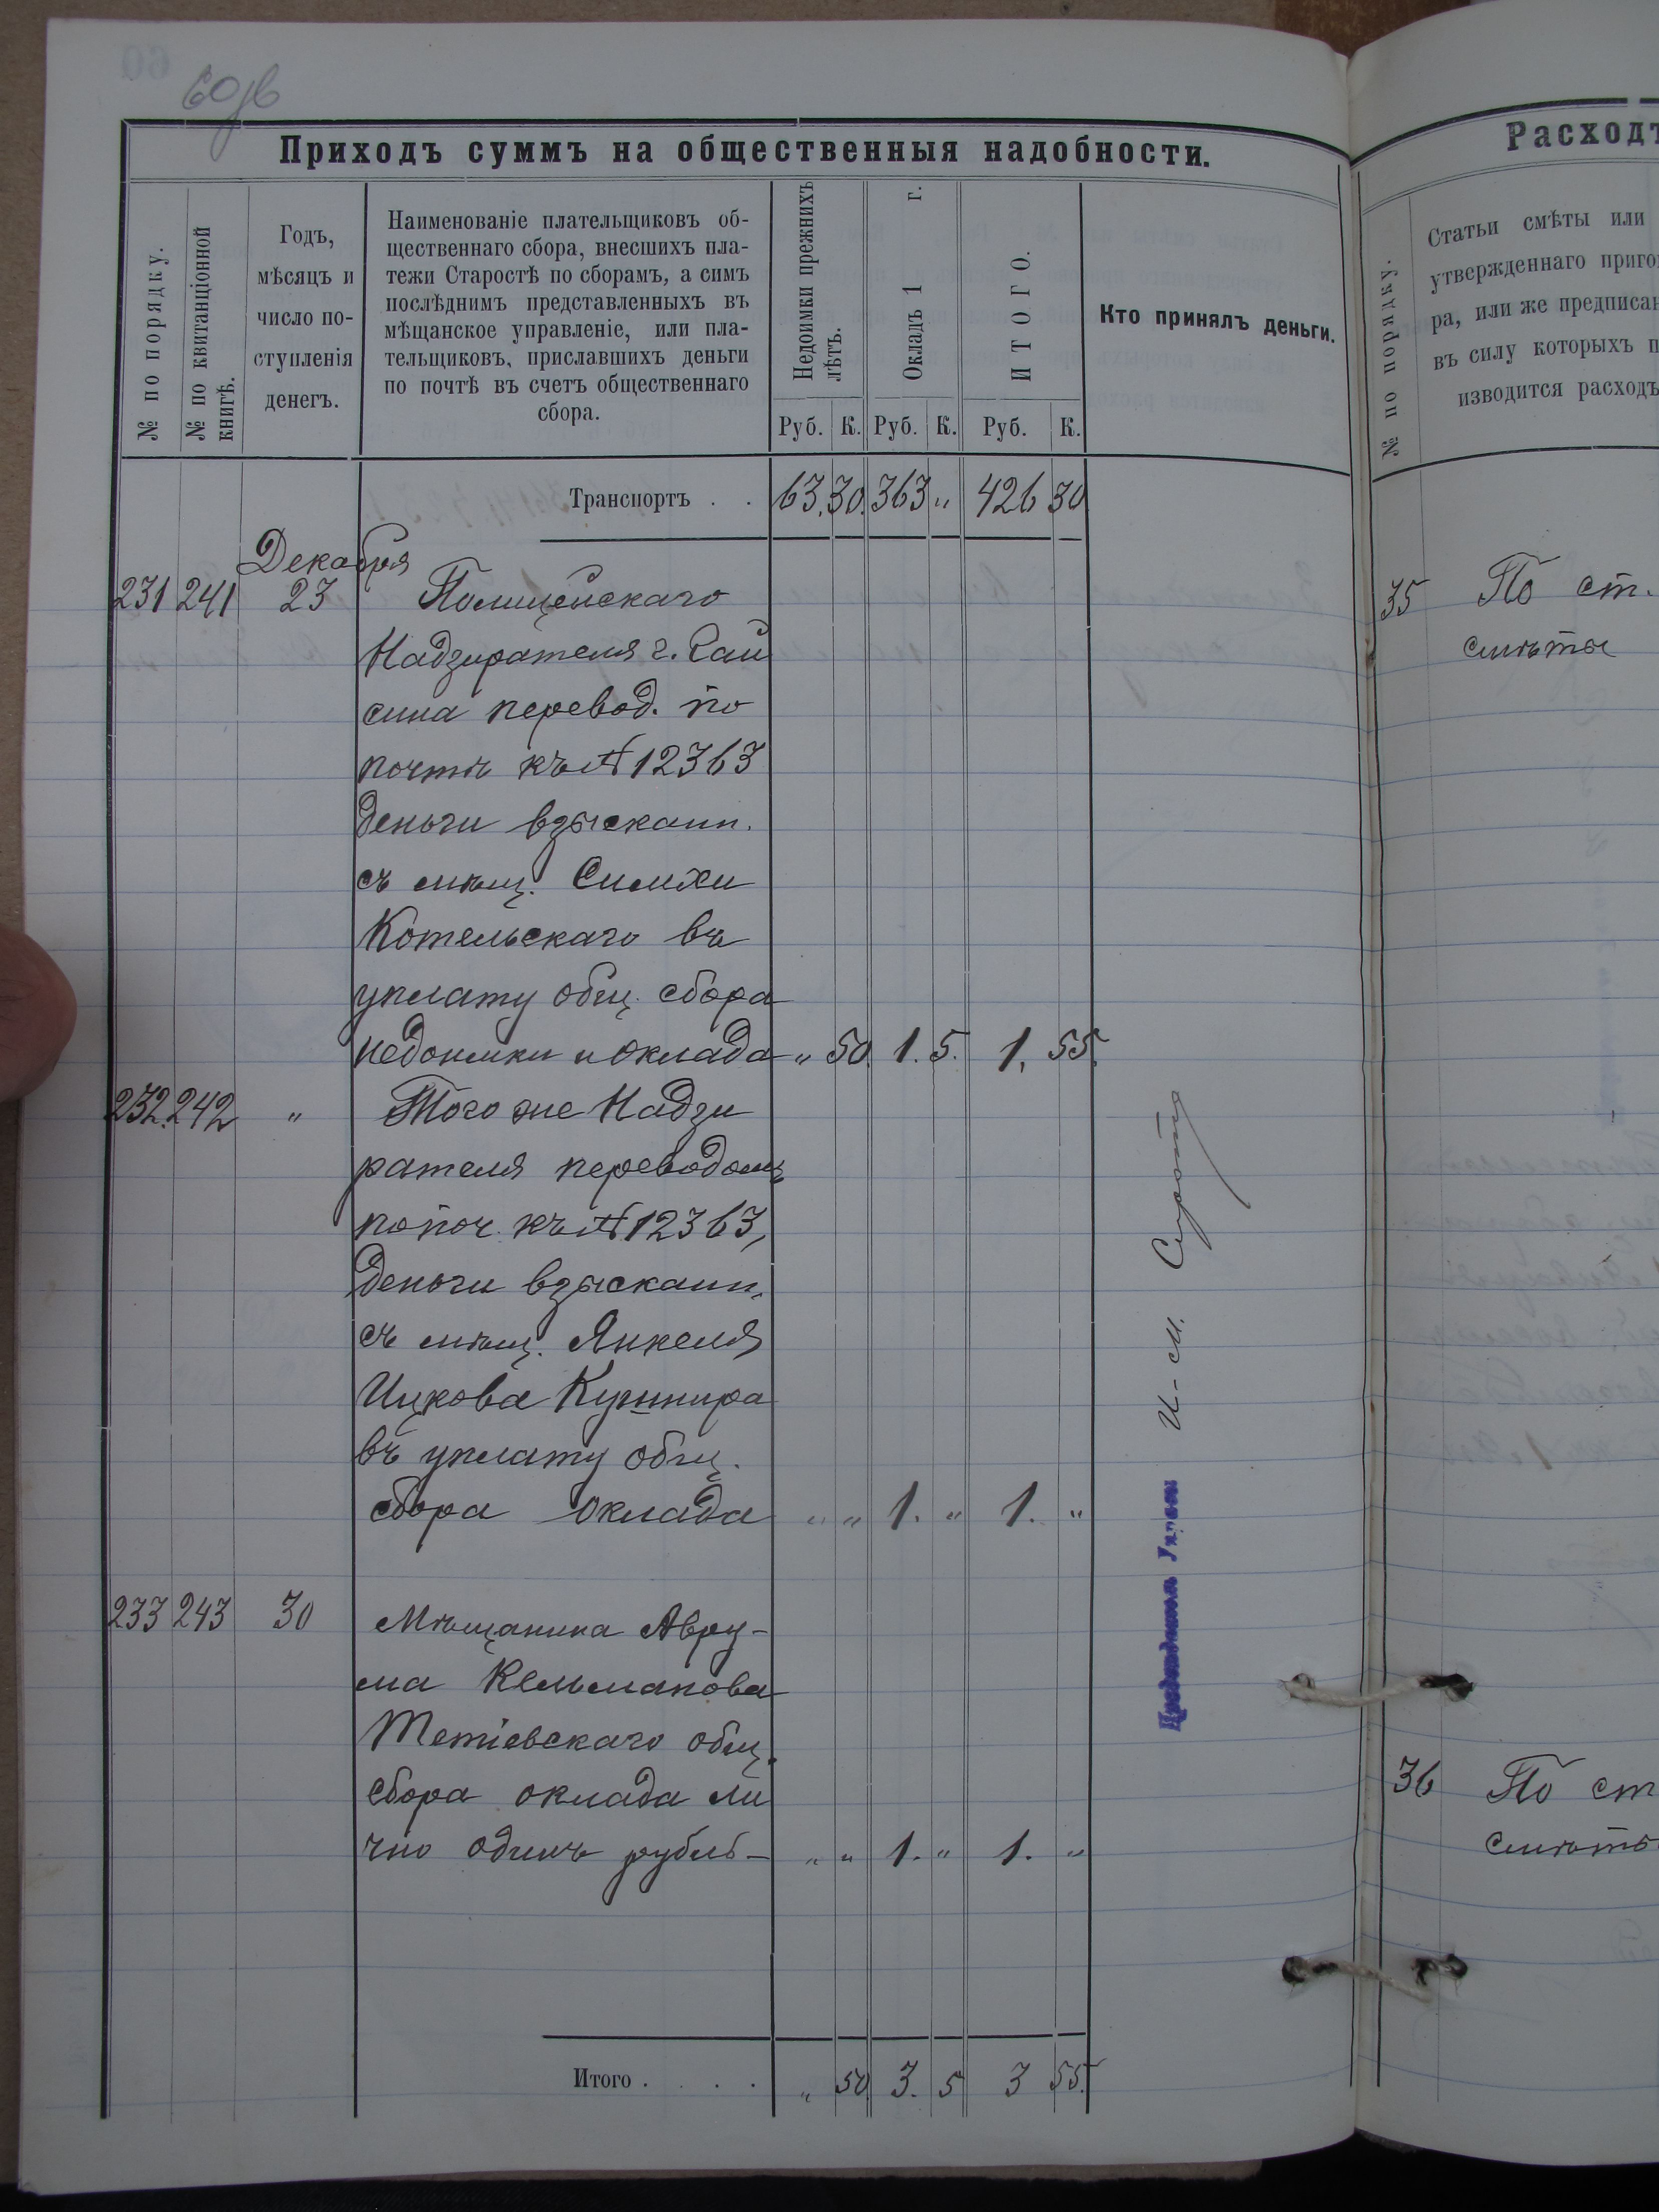 60
60/в
Приходъ суммъ на общественныя надобности.
№ по порядку.
№ по квитанціонной
книгѣ.
Годъ,
мѣсяцъ и
число по-
ступленія
денегъ.
Наименованіе плательщиковъ об-
щественнаго сбора, внесшихъ пла-
тежи Старостѣ по сборамъ, а симъ
послѣднимъ представленныхъ въ
мѣщанское управленіе, или пла-
тельщиковъ, приславшихъ деньги
по почтѣ въ счетъ общественнаго
сбора.
Недоимки прежнихъ
лѣтъ.
Окладъ 1 г.
ИТОГО.
Руб. К. Руб. К. Руб. К.
Кто принялъ деньги.
Транспортъ . . 63. 30. 363 „ 426 30
Декабря
231 241 23 Полицейскаго
Надзирателя г. Гай
сина перевод. по
почтѣ къ № 12363
деньги взысканн.
съ мѣщ. Симхи
Котельскаго въ
уплату общ. сбора
недоимки и оклада „ 50. 1. 5. 1. 55.
232. 242 „ Того же Надзи
рателя переводомъ
по поч. къ № 12363,
деньги взысканн.
съ мѣщ. Янкеля
Ицкова Кушнира
въ уплату общ.
сбора оклада „ „ 1. „ 1. „
233 243 30 Мѣщанина Авру-
ма Кельманова
Тетіевскаго общ.
сбора оклада ли
чно одинъ рубль - „ „ 1. „ 1. „
Итого . . . . „ 50 3. 5 3 55.
И-м. Сирота
Расходъ
№ по порядку.
Статьи смѣты или
утвержденнаго приго
ра, или же предписан
въ силу которыхъ п
изводится расходъ
35 По ст.
смѣты
36 По ст
смѣты